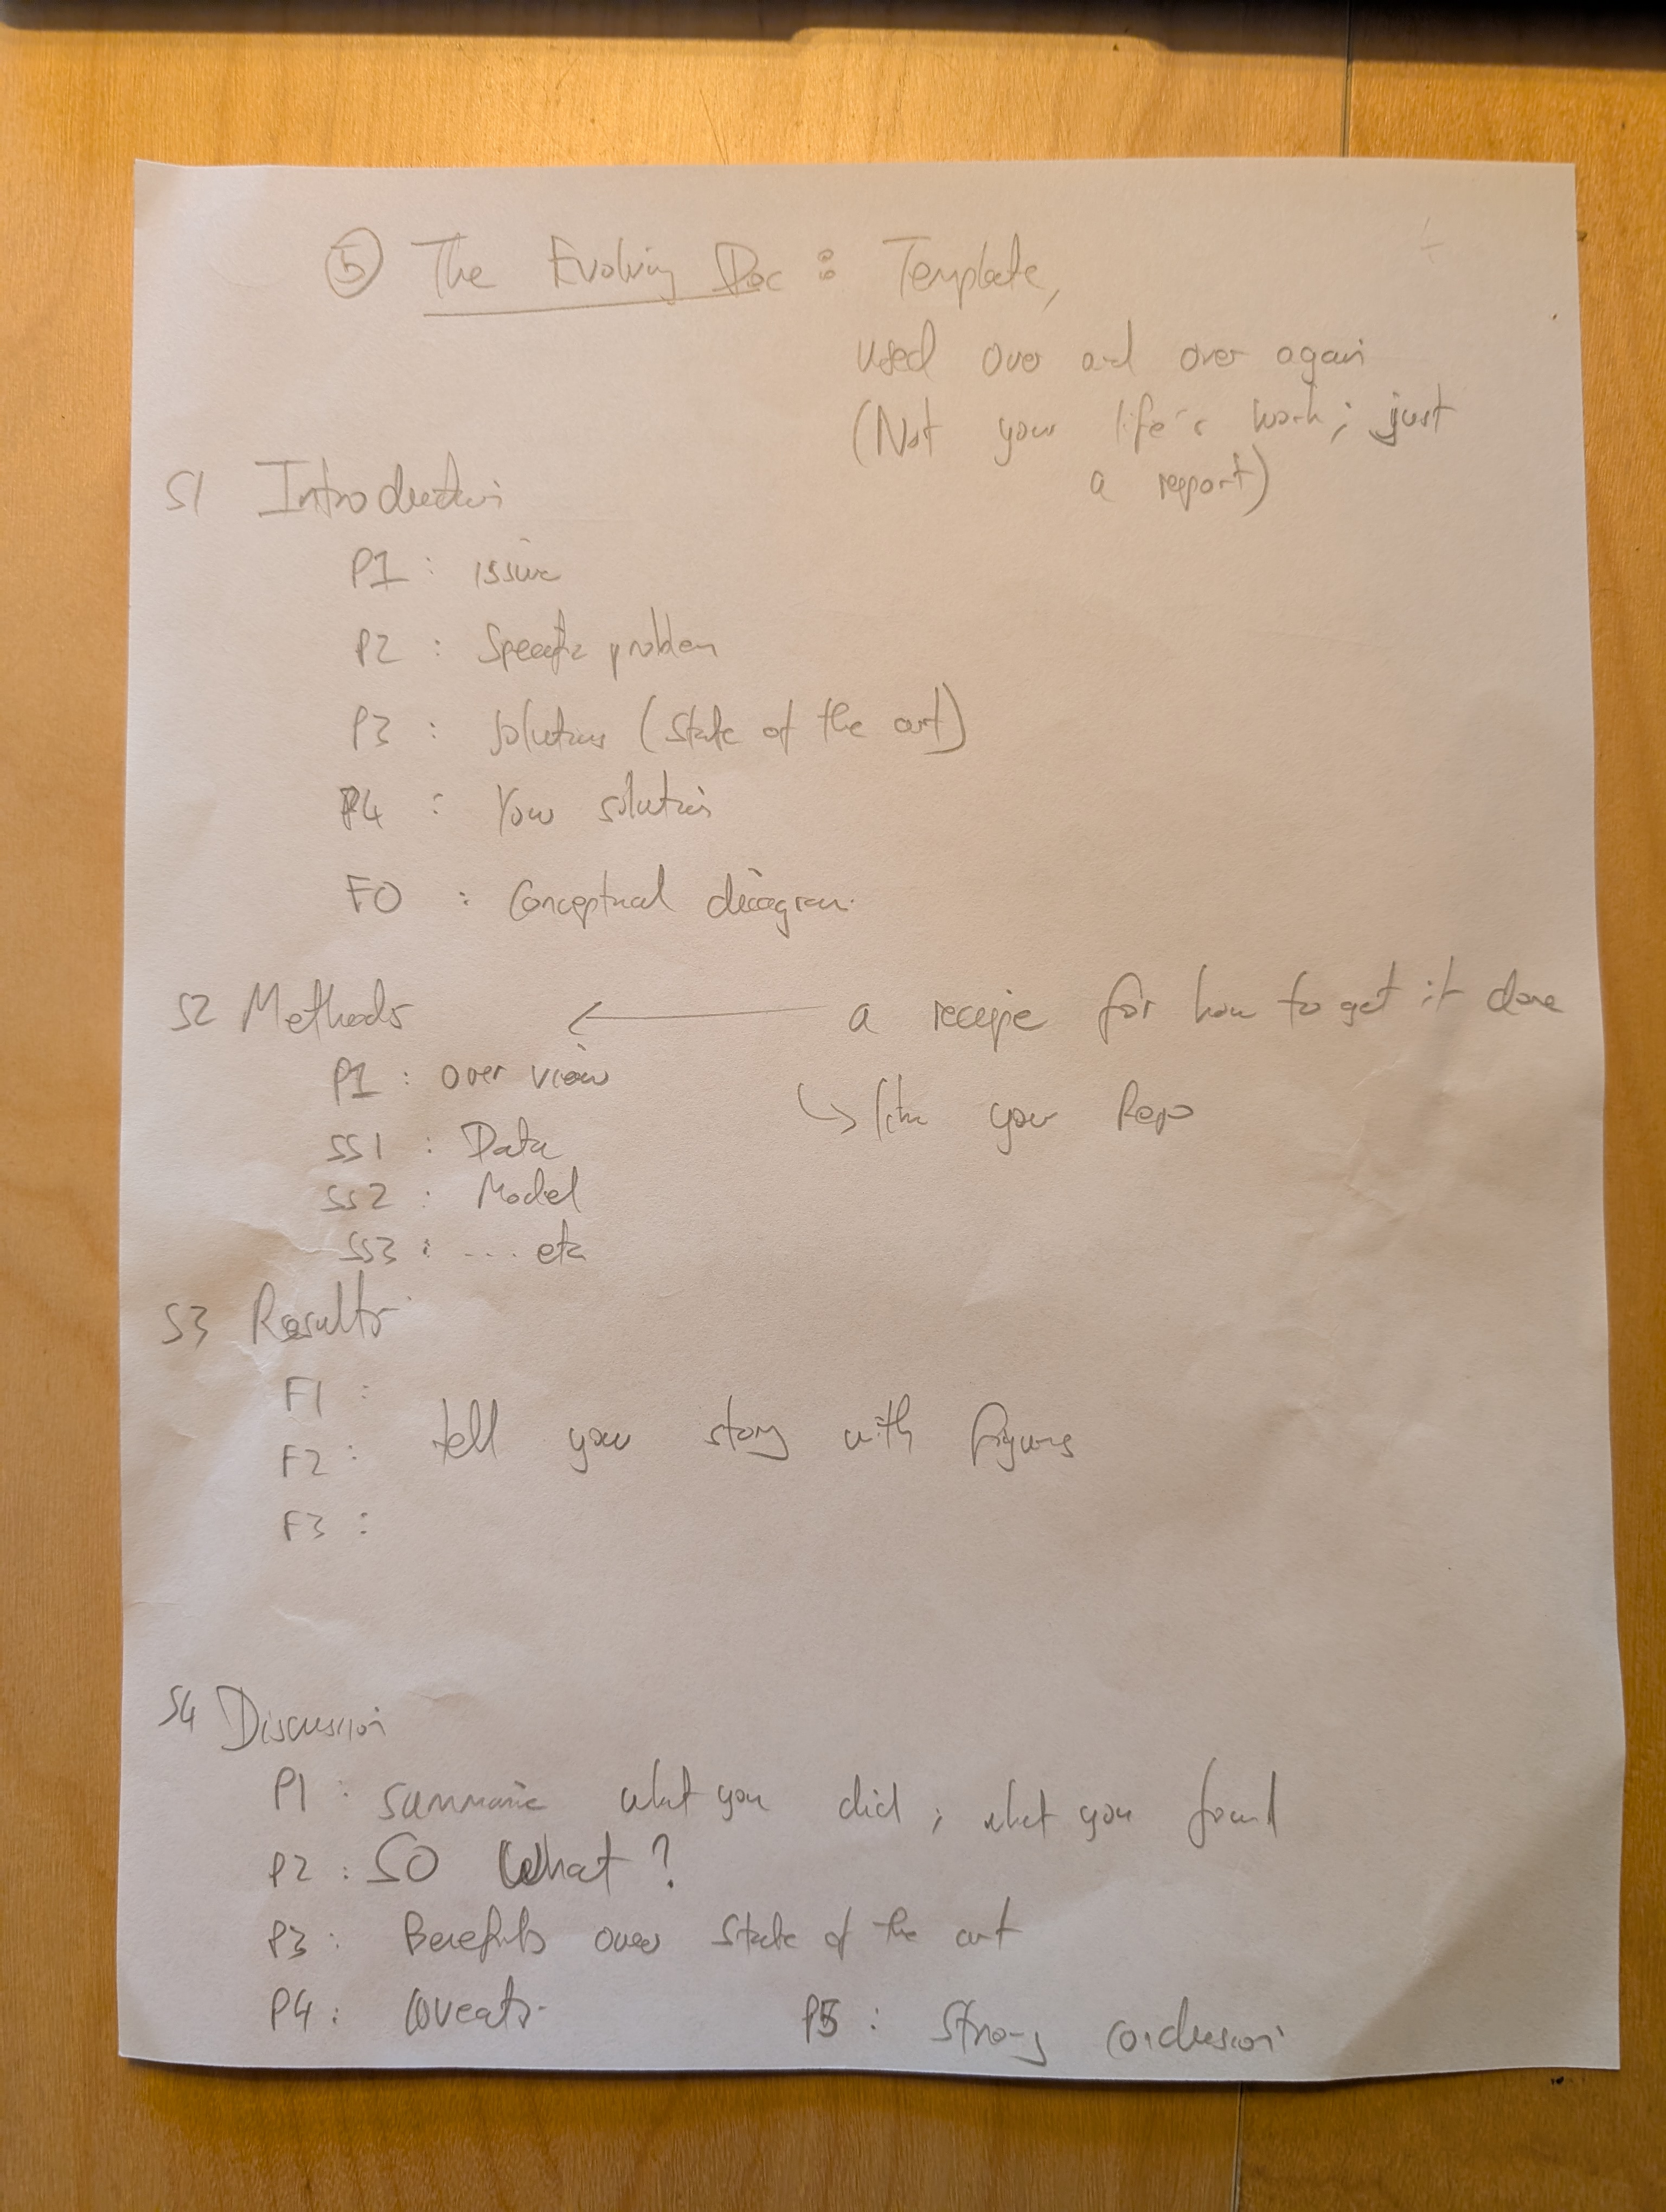 ⑤ The Evolving Doc : Template,
used over and over again
(Not your life's work; just
a report)
S1 Introduction
P1 : issue
P2 : Specific problem
P3 : Solutions (State of the art)
P4 : Your solution
F0 : Conceptual diagram
S2 Methods ← a recipe for how to get it done
P1 : over view
↳ like your Repo
SS1 : Data
SS2 : Model
SS3 : ... etc
S3 Results
F1 :
F2 : tell your story with figures
F3 :
S4 Discussion
P1 : summarize what you did ; what you found
P2 : SO What ?
P3 : Benefits over State of the art
P4 : Caveats P5 : Strong conclusion